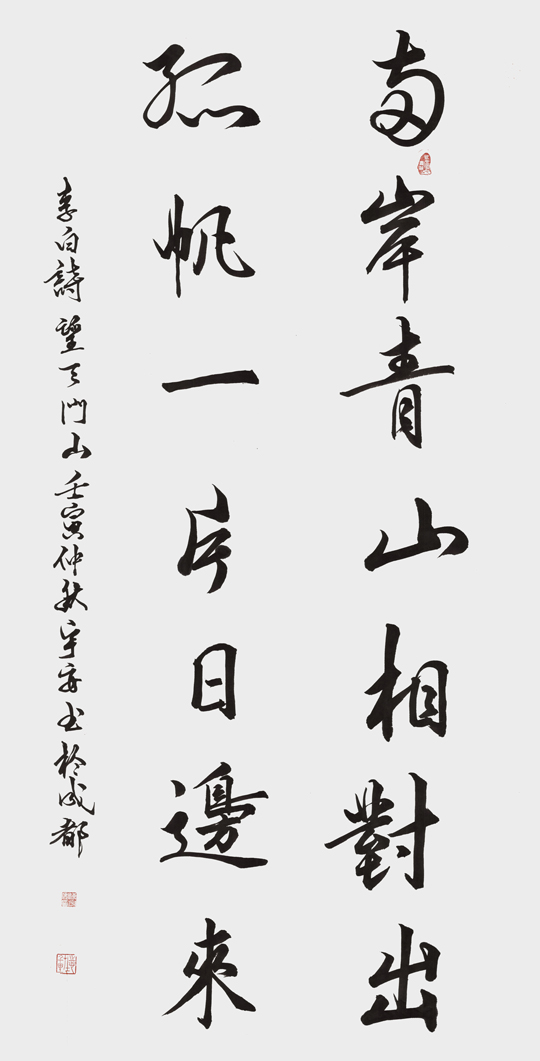 兩岸青山相對出
孤帆一片日邊來
李白詩望天門山壬寅仲秋宇安书於成都